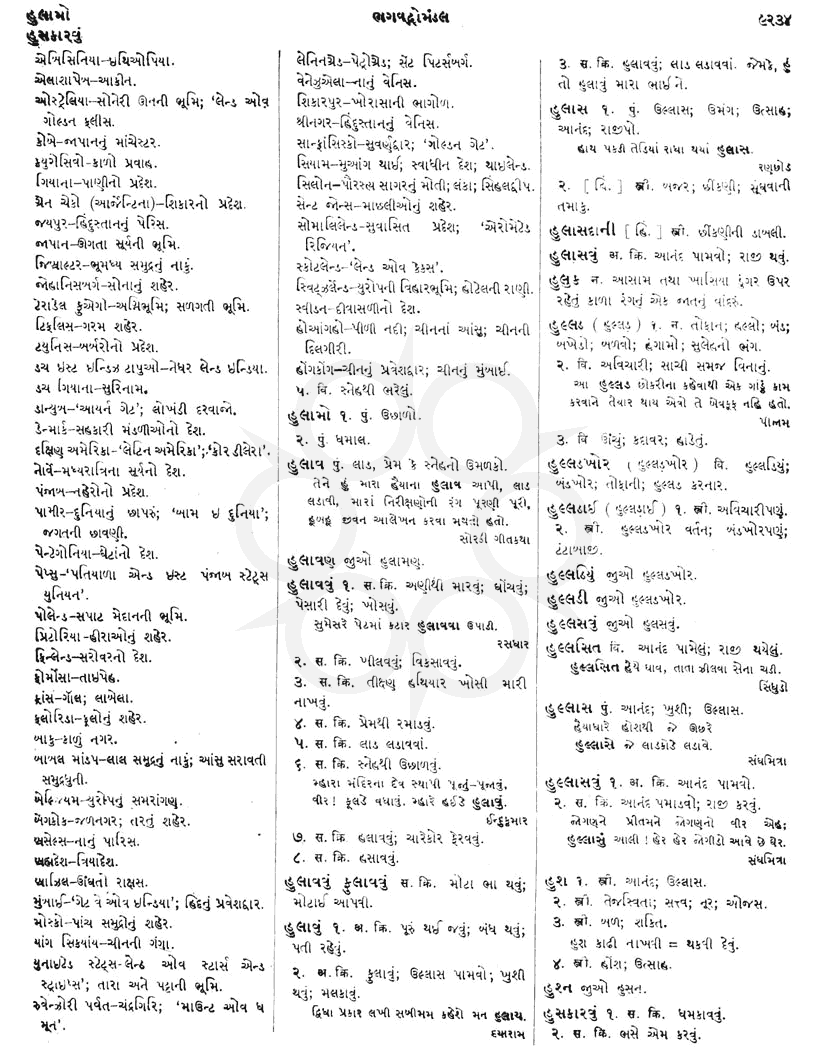 હુલામો
હુસકારવું
ભગવદ્ગોમંડલ
૯૨૩૪
એબિસિનિયા–ઇથિઓપિયા.
એલારાપેશ–આકીન.
ઓસ્ટ્રેલિયા–સોનેરી ઊનની ભૂમિ; ‘લેન્ડ ઓવ
ગોલ્ડન ફ્લીસ.
કોબે–જાપાનનું માંચેસ્ટર.
ક્યુગેસિવો–કાળો પ્રવાહ.
ગિયાના–પાણીનો પ્રદેશ.
ગ્રેન ચેકો (આર્જેન્ટિના)–શિકારનો પ્રદેશ.
જયપુર–હિંદુસ્તાનનું પેરિસ.
જાપાન–ઊગતા સૂર્યની ભૂમિ.
જિબ્રાલ્ટર–ભૂમધ્ય સમુદ્રનું નાકું.
જોહાનિસબર્ગ–સોનાનું શહેર.
ટેરાડેલ ફુએગો–અગ્નિભૂમિ; સળગતી ભૂમિ.
ટિફ્લિસ–ગરમ શહેર.
ટ્યુનિસ–બર્બરોનો પ્રદેશ.
ડચ ઇસ્ટ ઇન્ડિઝ ટાપુઓ–નેધર લેન્ડ ઇન્ડિયા.
ડચ ગિયાના–સુરિનામ.
ડાન્યુબ–‘આયર્ન ગેટ’; લોખંડી દરવાજો.
ડેન્માર્ક–સહકારી મંડળીઓનો દેશ.
દક્ષિણ અમેરિકા–‘લેટિન અમેરિકા’; ‘કોર ડીલેરા’.
નોર્વે–મધ્યરાત્રિના સૂર્યનો દેશ.
પંજાબ–નહેરોનો પ્રદેશ.
પામીર–દુનિયાનું છાપરું; ‘બામ ઇ દુનિયા’;
જગતની છાવણી.
પેન્ટેગોનિયા–ઘેટાંનો દેશ.
પેપ્સુ–‘પતિયાળા એન્ડ ઇસ્ટ પંજાબ સ્ટેટ્સ
યુનિયન’.
પોલેન્ડ–સપાટ મેદાનની ભૂમિ.
પ્રિટોરિયા–હીરાઓનું શહેર.
ફિન્લેન્ડ–સરોવરનો દેશ.
ફોર્મોસા–તાઇપેહ.
ફ્રાંસ–ગૉલ; લાબેલા.
ફ્લોરિડા–ફૂલોનું શહેર.
બાકુ–કાળું નગર.
બાબલ માંડપ–લાલ સમુદ્રનું નાકું; આંસુ સરાવતી
સમુદ્રધુની.
બેલ્જિયમ–યુરોપનું સમરાંગણ.
બેંગકોક–જળનગર; તરતું શહેર.
બ્રસેલ્સ–નાનું પારિસ.
બ્રહ્મદેશ–ત્રિયાદેશ.
બ્રાઝિલ–ઊંઘતો રાક્ષસ.
મુંબાઈ–‘ગેટ વે ઓવ ઇન્ડિયા’; હિંદનું પ્રવેશદ્વાર.
મોસ્કો–પાંચ સમુદ્રીનું શહેર.
યાંગ સિક્યાંય–ચીનની ગંગા.
યુનાઇટેડ સ્ટેટ્સ–લેન્ડ ઓવ સ્ટાર્સ એન્ડ
સ્ટ્રાઇપ્સ’; તારા અને પટ્ટાની ભૂમિ.
રુવેન્ઝોરી પર્વત–ચંદ્રગિરિ; ‘માઉન્ટ ઓવ ધ
મૂન’.
લેનિનગ્રેડ–પેટ્રોગ્રેડ; સેંટ પિટર્સબર્ગ.
વેનેઝુએલા–નાનું વેનિસ.
શિકારપુર–ખોરાસાની ભાગોળ.
શ્રીનગર–હિંદુસ્તાનનું વેનિસ.
સાન્ફ્રાંસિસ્કો–સુવર્ણદ્વાર; ‘ગોલ્ડન ગેટ’.
સિયામ–મુઆંગ થાઇ; સ્વાધીન દેશ; થાઇલેન્ડ.
સિલોન–પૌરસ્ત્ય સાગરનું મોતી; લંકા; સિંહલદ્વીપ.
સેન્ટ જોન્સ–માછલીઓનું શહેર.
સોમાલિલેન્ડ–સુવાસિત પ્રદેશ; ‘એરોમેટેડ
રિજિયન’.
સ્કોટલેન્ડ–‘લેન્ડ ઓવ કેક્સ’.
સ્વિટ્ઝર્લેન્ડ–યુરોપની વિહારભૂમિ; હોટેલની રાણી.
સ્વીડન–દીવાસળીનો દેશ.
હોઆંગહો–પીળી નદી; ચીનનાં આંસુ; ચીનની
દિલગીરી.
હોંગકોંગ–ચીનનું પ્રવેશદ્વાર; ચીનનું મુંબાઈ.
૫. વિ. સ્નેહથી ભરેલું.
હુલામો ૧. પું. ઉછાળો.
૨. પું. ધમાલ.
હુલાવ પું. લાડ, પ્રેમ કે સ્નેહનો ઉમળકો.
તેને હું મારા હૈયાના હુલાવ આપી, લાડ
લડાવી, મારાં નિરીક્ષણોની રંગ પૂરણી પૂરી,
હૂબહૂ જીવન આલેખન કરવા મથતો હતો.
સોરઠી ગીતકથા
હુલાવણ જુઓ હુલામણ.
હુલાવવું ૧. સ. ક્રિ. અણીથી મારવું; ઘોંચવું;
પેસારી દેવું; ખોસવું.
સુમેસરે પેટમાં કટાર હુલાવવા ઉપાડી.
રસધાર
૨. સ. ક્રિ. ખીલવવું; વિકસાવવું.
૩. સ. ક્રિ. તીક્ષ્ણ હથિયાર ખોસી મારી
નાખવું.
૪. સ. ક્રિ. પ્રેમથી રમાડવું.
૫. સ. ક્રિ. લાડ લડાવવાં.
૬. સ. ક્રિ. સ્નેહથી ઉછાળવું.
મ્હારા મંદિરના દેવ સ્થાપી પૂજું–પૂજાવું,
વીર ! ફૂલડે વધાવું. મ્હારે હઈડે હુલાવું.
ઈન્દુકુમાર
૭. સ. ક્રિ. હલાવવું; ચારેકોર ફેરવવું.
૮. સ. ક્રિ. હસાવવું.
હુલાવવું ફુલાવવું સ. ક્રિ. મોટા ભા થવું;
મોટાઈ આપવી.
હુલાવું ૧. અ. ક્રિ. પૂરું થઈ જવું; બંધ થવું;
પતી રહેવું.
૨. અ. ક્રિ. ફુલાવું; ઉલ્લાસ પામવો; ખુશી
થવું; મલકાવું.
દ્વિધા પ્રકાર લખી સખીમમ કહેશો મન હુલાય.
દયારામ
૩. સ. ક્રિ. હુલાવવું; લાડ લડાવવાં. જેમકે, હું
તો હુલાવું મારા ભાઈને.
હુલાસ ૧. પું. ઉલ્લાસ; ઉમંગ; ઉત્સાહ;
આનંદ; રાજીપો.
હાથ પકડી તેડિયાં રાધા થયાં હુલાસ.
રણછોડ
૨. [ હિં. ] સ્ત્રી. બજર; છીંકણી; સૂંઘવાની
તમાકુ.
હુલાસદાની [ હિં. ] સ્ત્રી. છીંકણીની ડાબલી.
હુલાસવું અ. ક્રિ. આનંદ પામવો; રાજી થવું.
હુલુક ન. આસામ તથા ખાસિયા ડુંગર ઉપર
રહેતું કાળા રંગનું એક જાતનું વાંદરું.
હુલ્લડ ( હુલ્લડ ) ૧. ન. તોફાન; હલ્લો; બંડ;
બખેડો; બળવો; હંગામો; સુલેહનો ભંગ.
૨. વિ. અવિચારી; સાચી સમજ વિનાનું.
આ હુલ્લડ છોકરીના કહેવાથી એક ગાંડું કામ
કરવાને તૈયાર થાય એવો તે બેવકૂફ નહિ હતો.
પાલમ
૩. વિ ઊંચું; કદાવર; હાડેતું.
હુલ્લડખોર ( હુલ્લડખોર ) વિ. હુલ્લડિયું;
બંડખોર; તોફાની; હુલ્લડ કરનાર.
હુલ્લડાઈ ( હુલ્લડાઈ ) ૧. સ્ત્રી. અવિચારીપણું.
૨. સ્ત્રી. હુલ્લડખોર વર્તન; બંડખોરપણું;
ટંટાબાજી.
હુલ્લડિયું જુઓ હુલ્લડખોર.
હુલ્લડી જુઓ હુલ્લડખોર.
હુલ્લસવું જુઓ હુલસવું.
હુલ્લસિત વિ. આનંદ પામેલું; રાજી થયેલું.
હુલ્લસિત હૈયે ધાવ, તાતા ઝીલવા સેના ચડી.
સિંધુડો
હુલ્લાસ પું. આનંદ; ખુશી; ઉલ્લાસ.
હૈયાધારે હોંશથી જે ઊછરે
હુલ્લાસે જે લાડકોડે લડાવે.
સંઘમિત્રા
હુલ્લાસવું ૧. અ. ક્રિ. આનંદ પામવો.
૨. સ. ક્રિ. આનંદ પમાડવો; રાજી કરવું.
જોગણને પ્રીતમને જોગણનો વીર એહ;
હુલ્લાસું આલી ! હેર હેર જોગીડો આવે છે ઘેર.
સંઘમિત્રા
હુશ ૧. સ્ત્રી. આનંદ; ઉલ્લાસ.
૨. સ્ત્રી. તેજસ્વિતા; સત્ત્વ; નૂર; ઓજસ.
૩. સ્ત્રી. બળ; શક્તિ.
હુશ કાઢી નાખવી = થકવી દેવું.
૪. સ્ત્રી. હોંશ; ઉત્સાહ.
હુશ્ન જુઓ હુસન.
હુસકારવું ૧. સ. ક્રિ. ધમકાવવું.
૨. સ. ક્રિ. ભસે એમ કરવું.